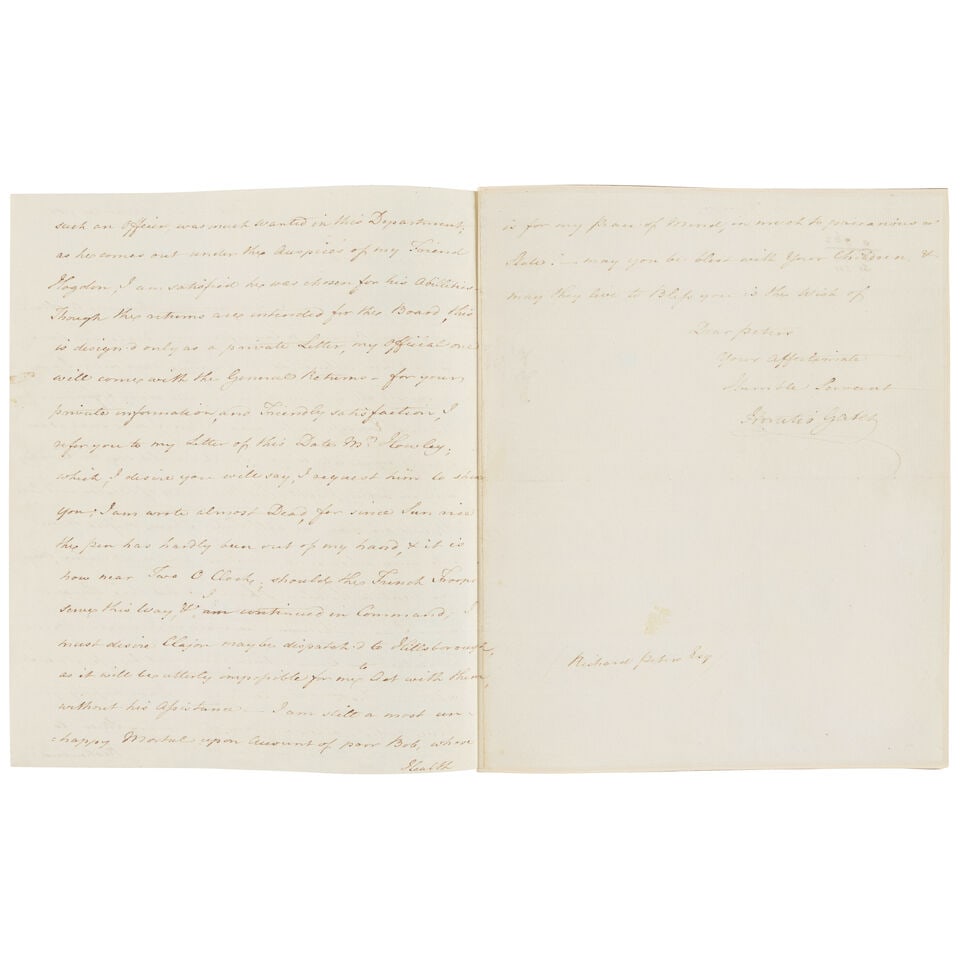 such an officer was much wanted in this Department,
as he comes out under the Auspices of my Friend
Hogdon, I am satisfied he was chosen for his Abilities.
Though the returns are intended for the Board, this
is design'd only as a private Letter, my official one
will come with the General Returns – for your
private information, and Friendly satisfaction, I
refer you to my Letter of this Date Mr. Howley;
which, I desire you will say, I request him to shew
you; I am wrote almost Dead, for since Sun rise
the pen has hardly been out of my hand, & it is
now near Two O Clock; should the French Troops
serve this Way, & I am continued in Command, I
must desire Clajon may be dispatch'd to Hillsborough,
as it will be utterly impossible for me to Act with them,
without his Assistance – I am still a most un-
=happy Mortal upon Account of poor Bob, whose
Health
is for my peace of Mind, in much to precarious a
State! – may you be blest with Your Children, &
may they live to Bless you is the Wish of
Dear Peters
Your affectionate
Humble Servant
Horatio Gates
Richard Peters Esq